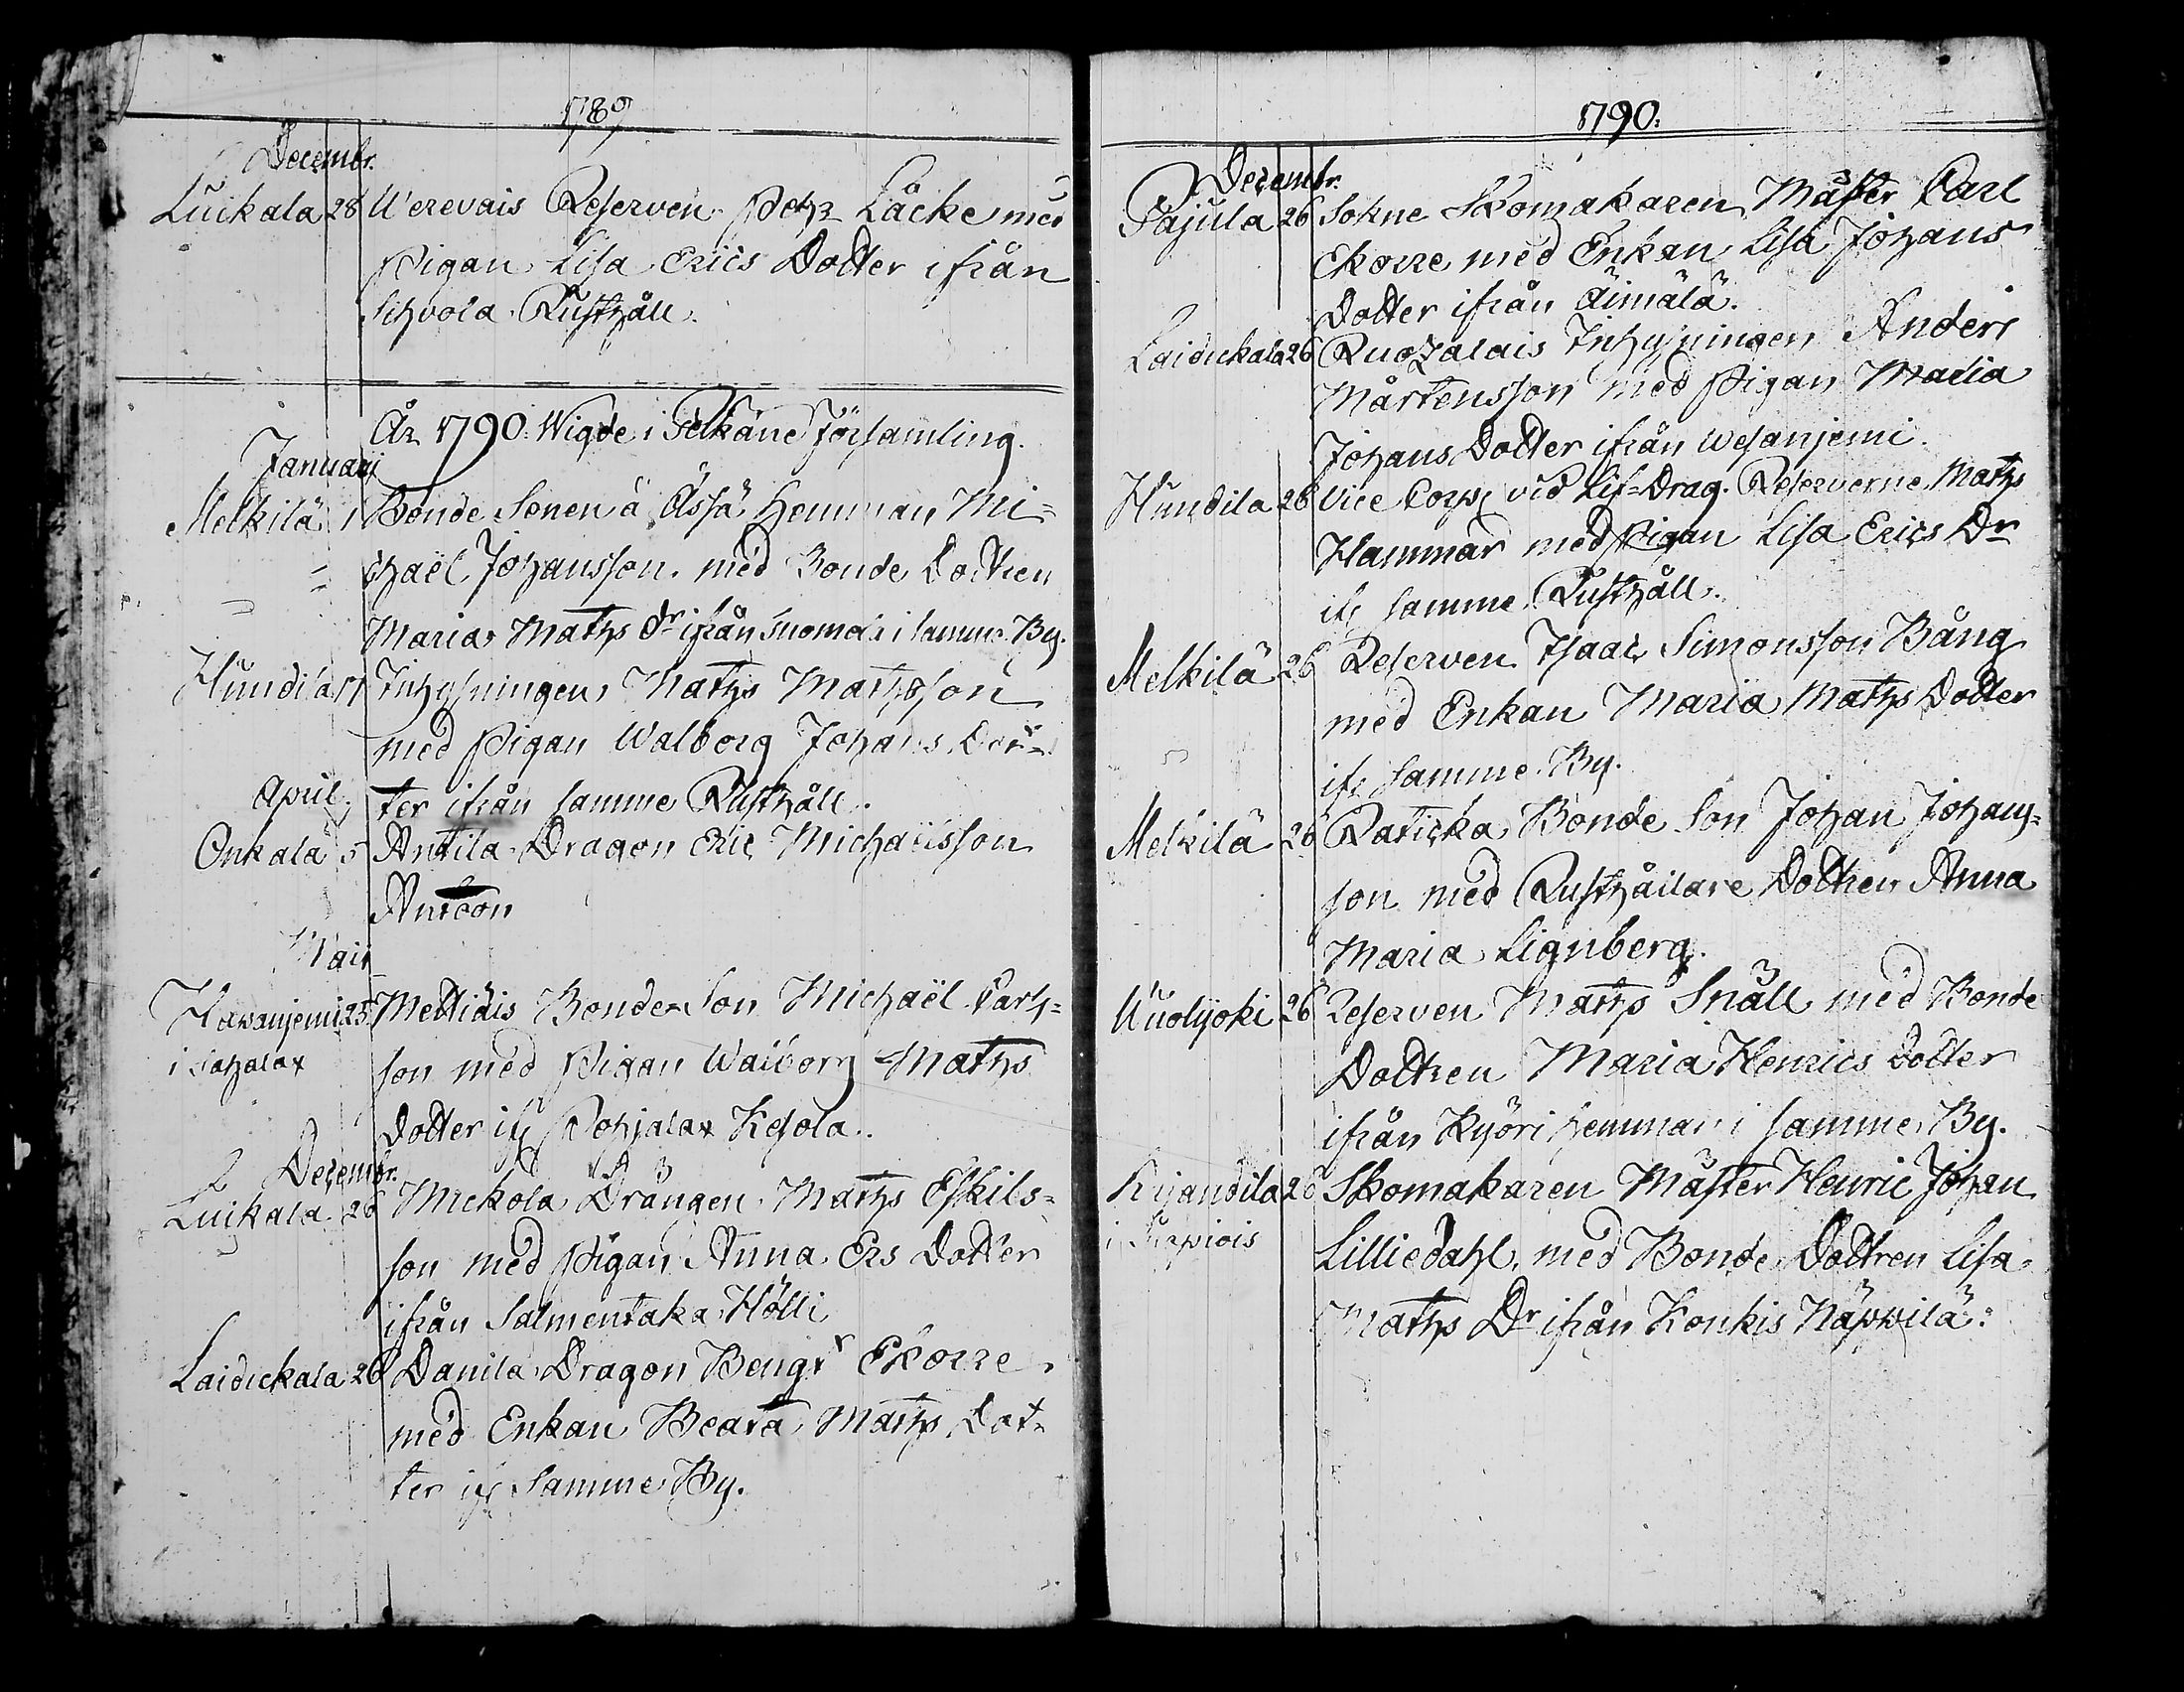 1789
Decembr.
Luikala 28 Werevais Reserven Pehr Låcke med
Pigan Lisa Erics Dotter ifrån
Sihvola Rusthåll.
År 1790. Wigde i Pelkäne Församling.
Januarj
Melkilä 1 Bonde Sonen å Ässä Hemman Mi=
chaël Johansson med Bonde Dottren
Maria Maths Dr ifrån Suomela i samme By.
Hundila 17 Inhysningen Maths Mathsson
med Pigan Walborg Johans Dot=
ter ifrån samme Rusthåll.
April
Onkala 5 Antila Dragon Eric Michaëlsson
Anteon
Maii
Hawanjemi 25 Mettiäis Bonde Son Michaël Carls=
i Sahalax son med Pigan Walborg Maths
Dotter ifr Pohjalax Kesola.
Decembr.
Luikala 26 Mickola Drängen Maths Eskils=
son med Pigan Anna Ers Dotter
ifrån Salmentaka Hölli
Laidickala 26 Danila Dragon Bengt Ekorre
med Enkan Beata Maths Dot=
ter ifr samme By.
1790.
Decembr.
Pajula 26 Sokne Skomakaren Mäster Carl
Ekorre med Enkan Lisa Johans
Dotter ifrån Äimälä.
Laidickala 26 Ruokalais Inhysningen Anders
Mårtensson med Pigan Maria
Johans Dotter ifrån Wesanjemi.
Hundila 26 Vice Corp vid Lif=Drag. Reserverne Maths
Hammar med Pigan Lisa Erics Dr
ifr samme Rusthåll.
Melkilä 26 Reserven Isaac Simonsson Bång
med Enkan Maria Maths Dotter
ifr samme By.
Melkilä 26 Raticka Bonde Son Johan Johans=
son med Rusthållare Dottren Anna
Maria Lignberg.
Wuolijoki 26 Reserven Maths Snäll med Bonde
Dottren Maria Henrics Dotter
ifrån Kyöri hemman i samme By.
Kijandila 26 Skomakaren Mäster Henric Johan
Lilliedahl, med Bonde Dottren Lisa
Maths Dr ifrån Konkis Näppilä.